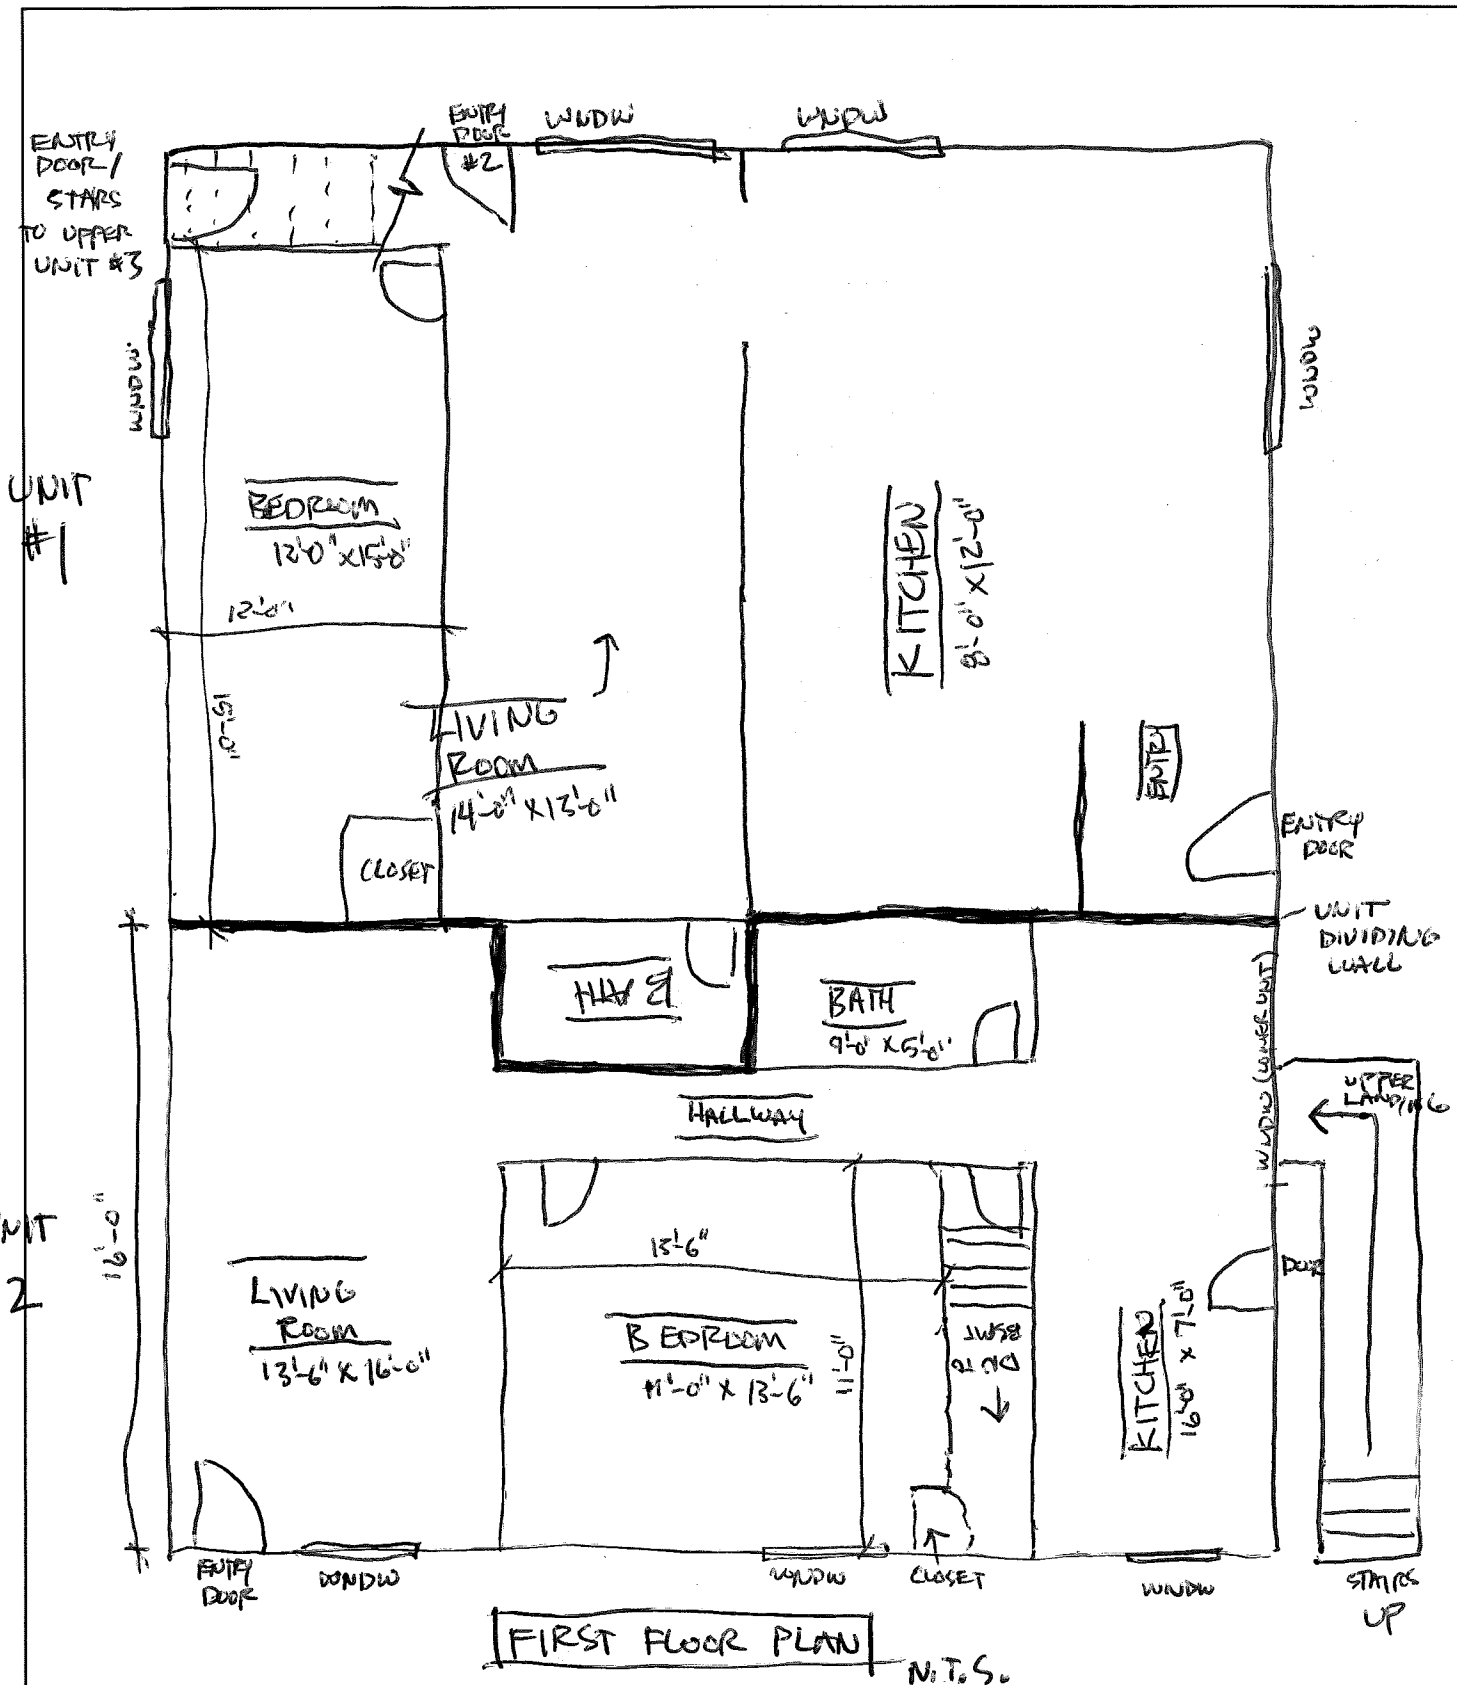 ENTRY
DOOR/
STARS
TO UPPER
UNIT #3
ENTRY
DOOR
#2
WNDW
WNDW
WNDW.
WNDW
UNIT
#1
BEDROOM
12'-0" x 15'-0"
12'-0"
15'-0"
LIVING
ROOM
14'-0" x 13'-0"
CLOSET
KITCHEN
8'-0" x 12'-0"
ENTRY
ENTRY
DOOR
UNIT
DIVIDING
WALL
BATH
BATH
9'-0" x 5'-0"
HALLWAY
WNDW (LOWER UNIT)
UPPER
LANDING
NIT
2
16'-0"
LIVING
ROOM
13'-6" x 16'-0"
13'-6"
BEDROOM
11'-0" x 13'-6"
11'-0"
BSMT
KITCHEN
16'-0" x 7'-0"
DOOR
ENTRY
DOOR
WNDW
WNDW
CLOSET
WNDW
STAIRS
UP
FIRST FLOOR PLAN
N.T.S.